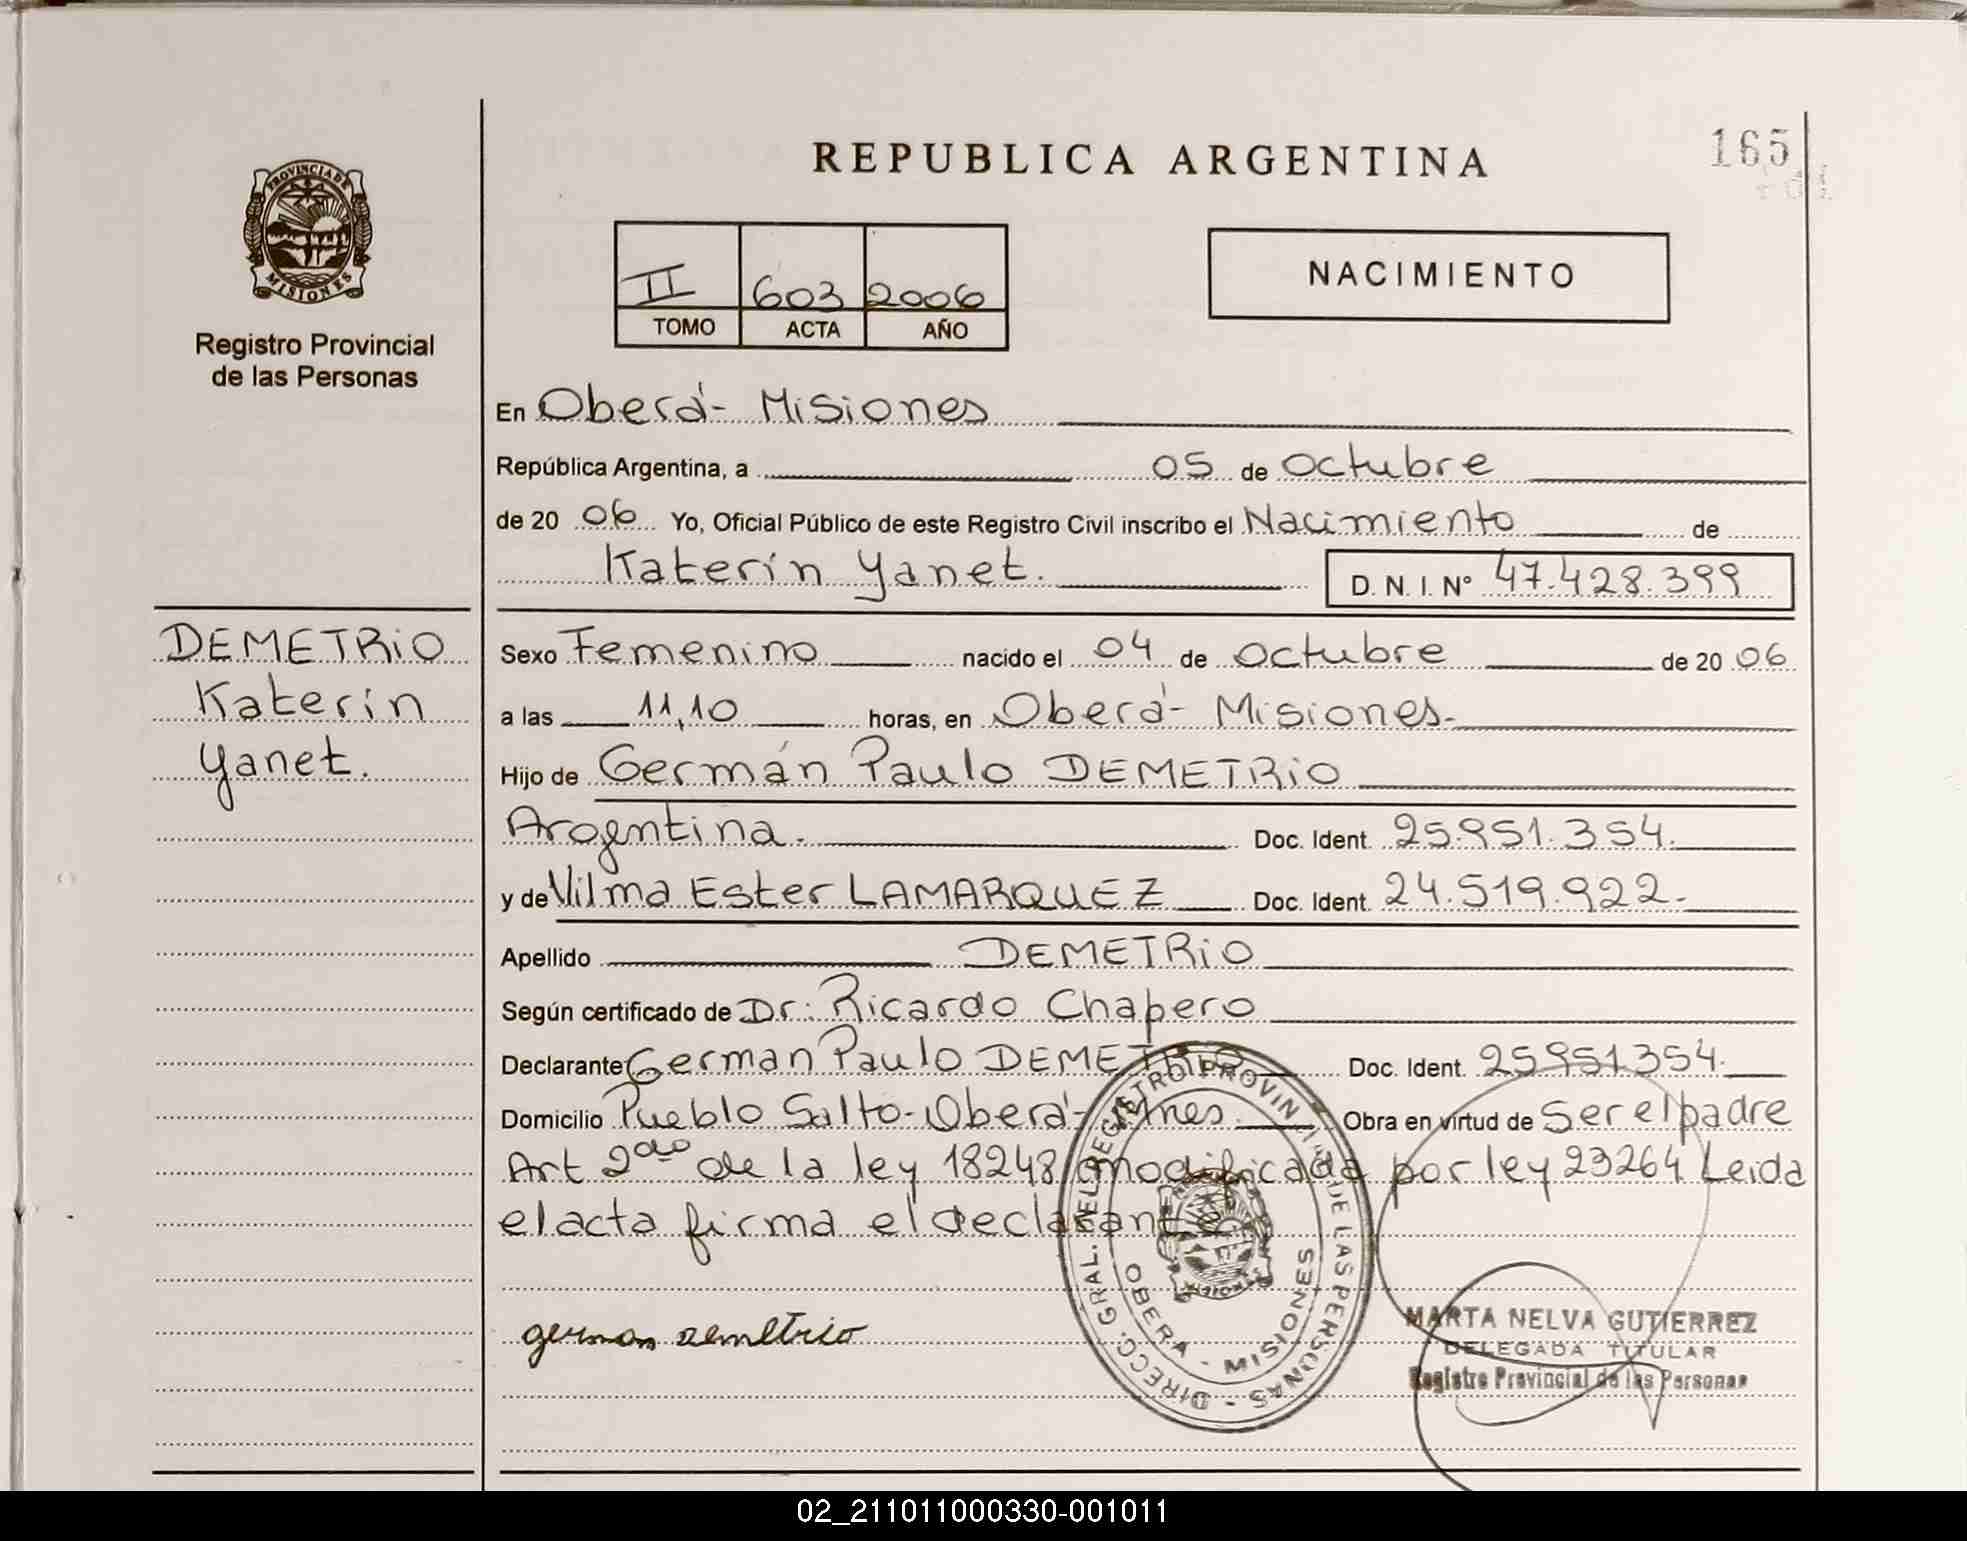 REPUBLICA ARGENTINA
165
PROVINCIA DE
MISIONES
Registro Provincial
de las Personas
II 603 2006
TOMO ACTA AÑO
NACIMIENTO
En Oberá - Misiones
República Argentina, a 05 de Octubre
de 20 06 Yo, Oficial Público de este Registro Civil inscribo el Nacimiento de
Katerin Yanet. D. N. I. Nº 47.428.399
DEMETRiO
Katerin
Yanet.
Sexo Femenino nacido el 04 de Octubre de 20 06
a las 11,10 horas, en Oberá - Misiones.
Hijo de Germán Paulo DEMETRiO
Argentina. Doc. Ident. 25.951.354.
y de Vilma Ester LAMARQUEZ Doc. Ident. 24.519.922.
Apellido DEMETRiO
Según certificado de Dr: Ricardo Chapero
Declarante German Paulo DEMETRIO Doc. Ident. 25951354.
Domicilio Pueblo Salto - Oberá - Mnes. Obra en virtud de Ser el padre
Art 2do de la ley 18248 modificada por ley 23264 Leida
el acta firma el declarante
german demetrio
DIRECC. GRAL. DEL REGISTRO PROVINCIAL DE LAS PERSONAS -
OBERA - MISIONES
MARTA NELVA GUTIERREZ
DELEGADA TITULAR
Registro Provincial de las Personas
02_211011000330-001011